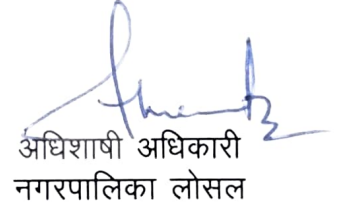 अधिशाषी अधिकारी
नगरपालिका लोसल